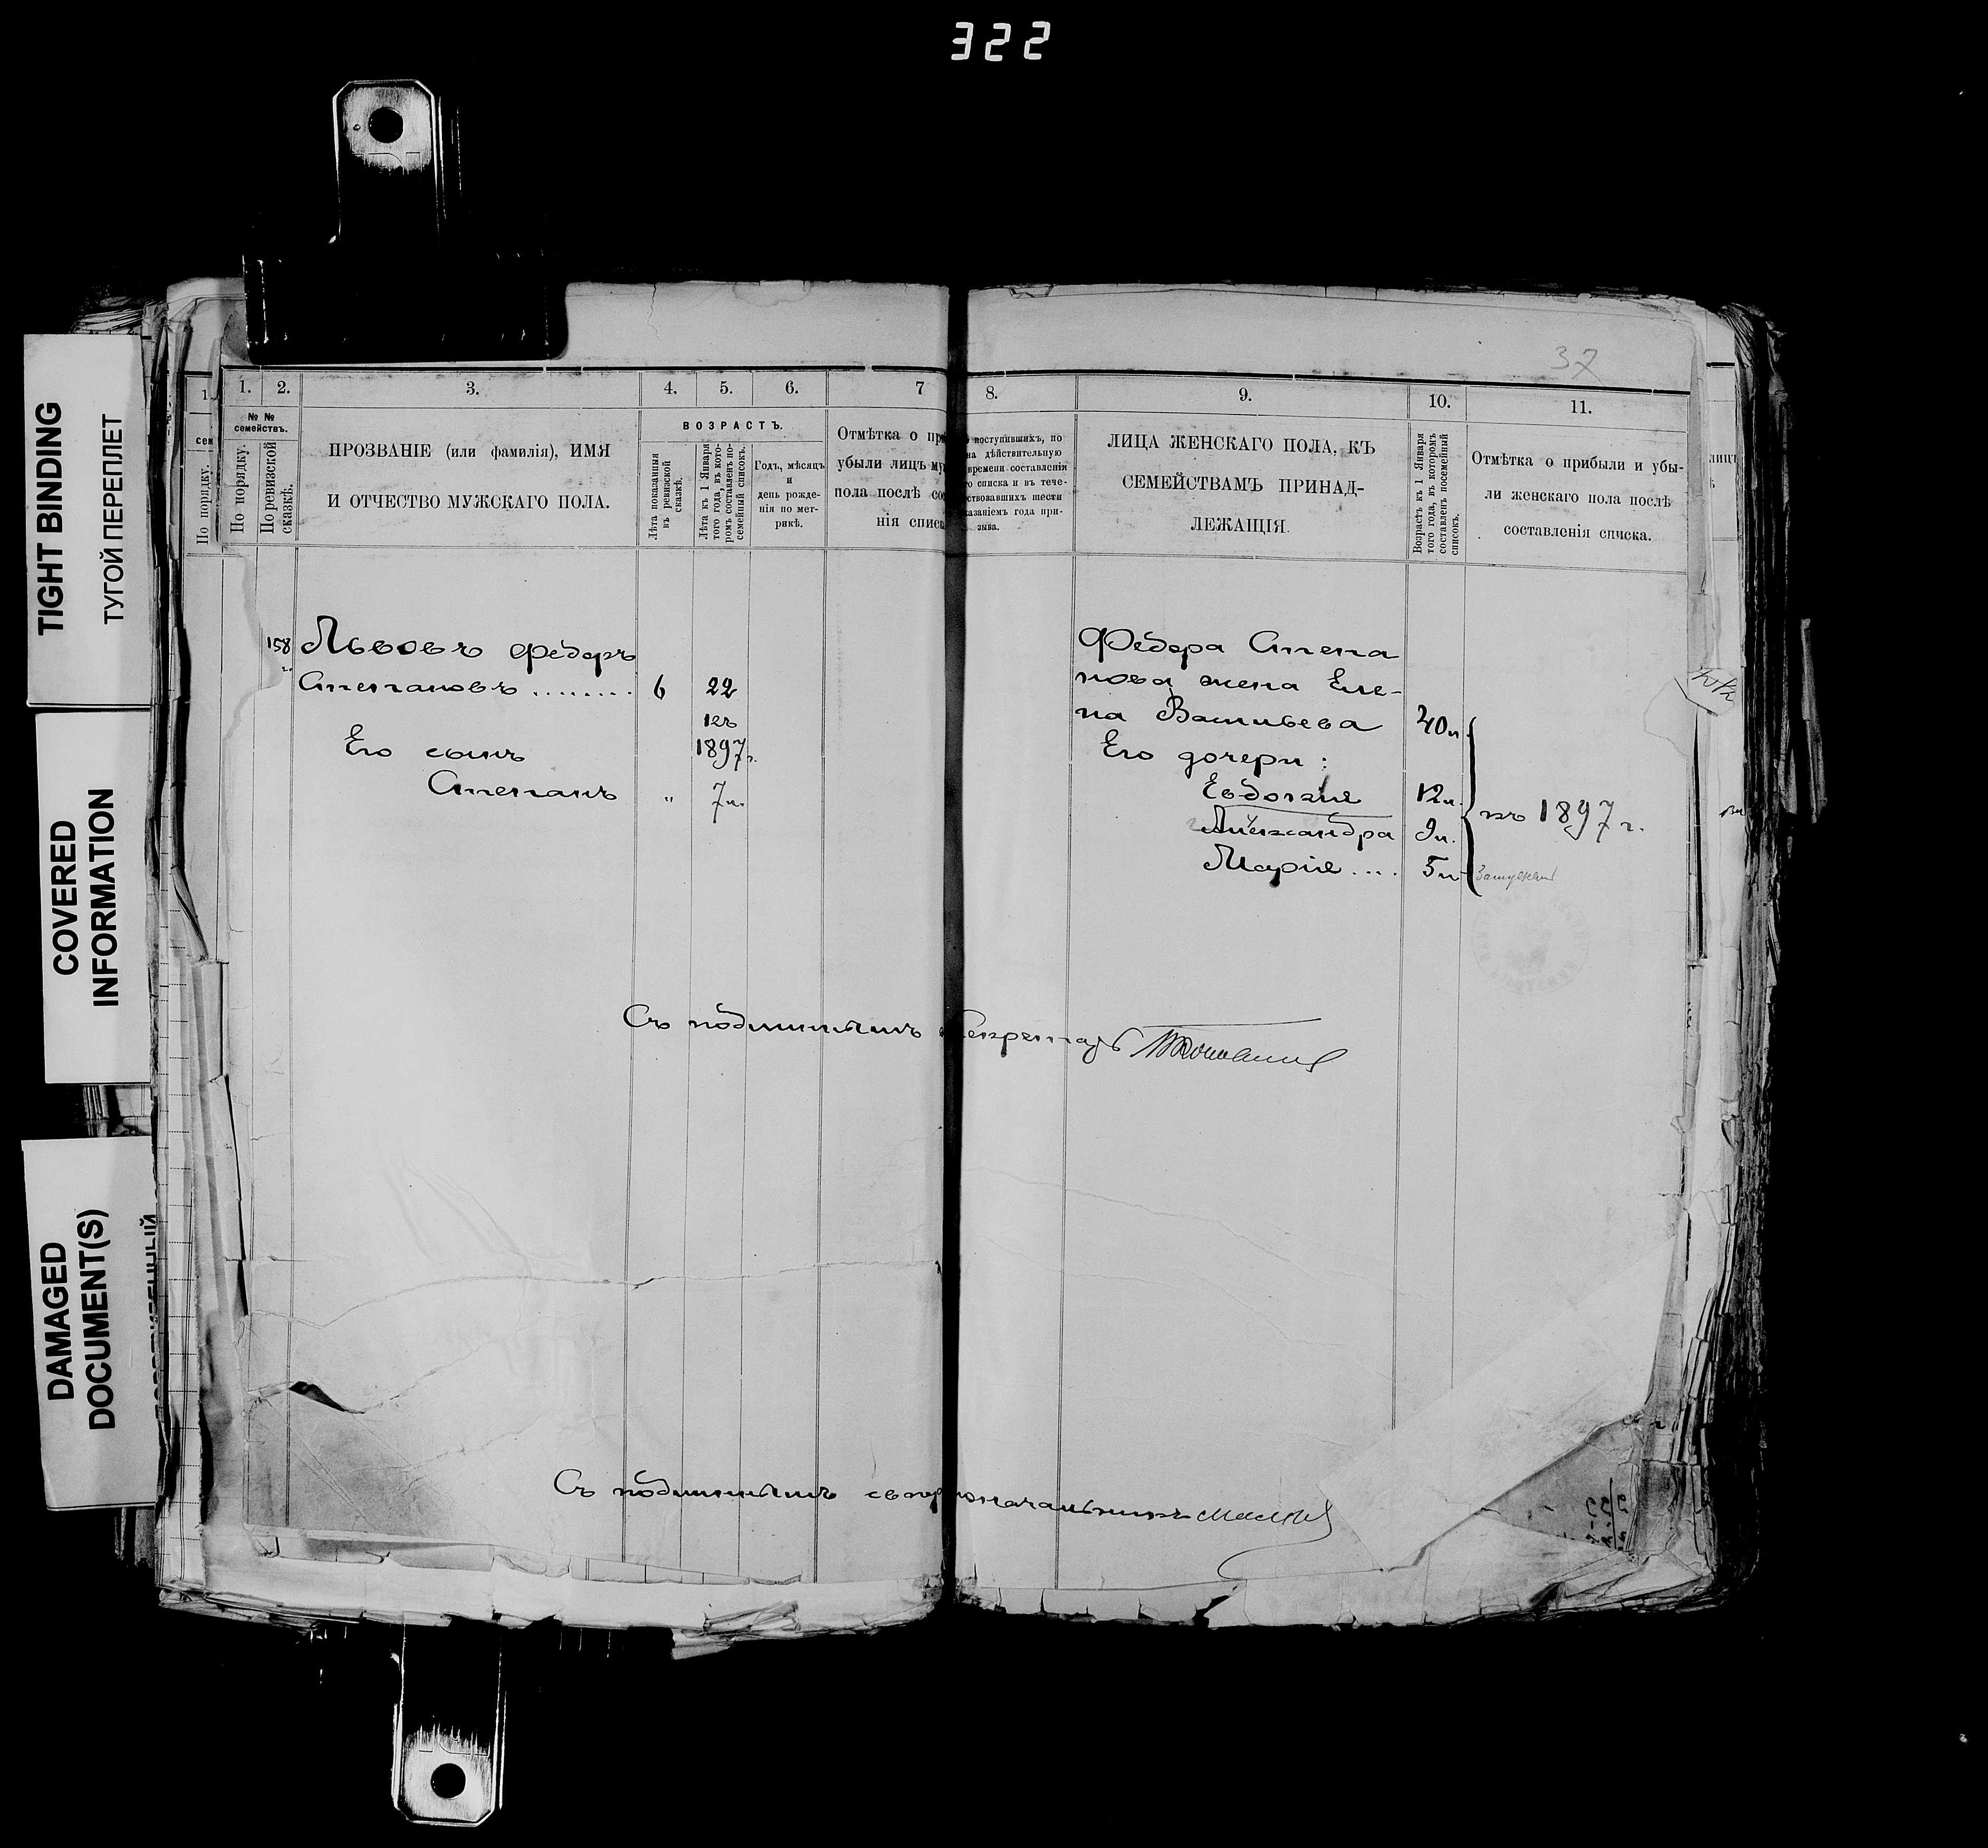 322
TIGHT BINDING
ТУГОЙ ПЕРЕПЛЕТ
COVERED
INFORMATION
DAMAGED
DOCUMENT(S)
37
1. 2. 3. 4. 5. 6. 7 8. 9. 10. 11.
№ №
семействъ.
По порядку.
По порядку.
По ревизской
сказкѣ.
ПРОЗВАНІЕ (или фамилія), ИМЯ
И ОТЧЕСТВО МУЖСКАГО ПОЛА.
ВОЗРАСТЪ.
Лѣта показанныя
въ ревизской
сказкѣ.
Лѣта къ 1 Января
того года, въ кото-
ромъ составленъ по-
семейный списокъ.
Годъ, мѣсяцъ
и
день рожде-
нія по мет-
рикѣ.
Отмѣтка о пр
убыли лицъ му
пола послѣ со
нія списк
поступившихъ, по
на дѣйствительную
времени составленія
о списка и въ тече-
ствовавшихъ шести
казаніемъ года при-
зыва.
ЛИЦА ЖЕНСКАГО ПОЛА, КЪ
СЕМЕЙСТВАМЪ ПРИНАД-
ЛЕЖАЩІЯ.
Возрастъ къ 1 Января
того года, въ которомъ
составленъ посемейный
списокъ.
Отмѣтка о прибыли и убы-
ли женскаго пола послѣ
составленія списка.
158 Львовъ Федоръ
Степановъ ........ 6 22
къ
Его сынъ 1897 г.
Степанъ " 7 л.
Федора Степа
нова жена Еле-
на Васильева 40 л
Его дочери:
Евдокия 12 л.
Александра 9 л. къ 1897 г.
Марія .... 5 л
Замужем
Съ подлиннымъ Секретарь
Съ подлиннымъ